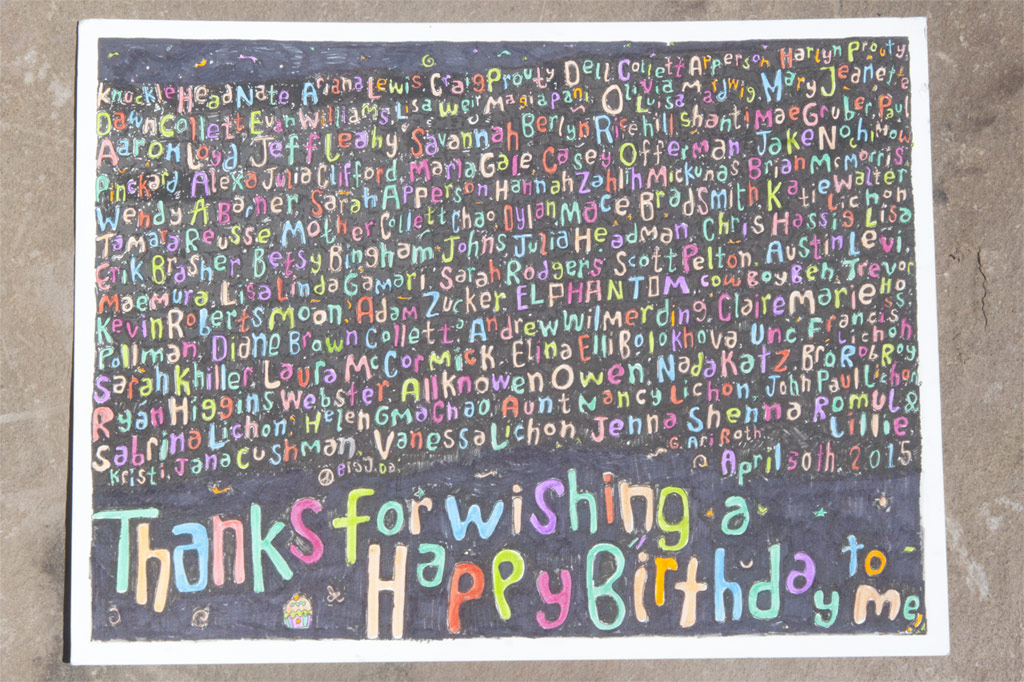 KnuckleHeadNate, Ariana Lewis, Craig Prouty, Dell Collett Apperson, Harlyn Prouty,
Dawn Collett, Evan Williams, Lisa Weir, Magia Pani, Olivia, Luisa Mary Jeanette,
Aaron Loyd, Jeff Leahy, Savannah Berlyn, Shanti Mae Gruber, Paul
Pinckard, Alexa Julia Clifford, Marla Gale, Casey Offerman, Jake
Wendy A Barner, Sarah Apperson, Hannah Zahlih Mickunas, Brian McMorris,
Tamara Reusse, Mother Collett Chao, Dylan Mace, Brad Smith, Katie Walter
Erik Brasher, Betsy Bingham, Johns, Julia Headman, Chris Hassig, Lisa Lichon
Maemura, Lisa Linda Gamari, Sarah Rodgers, Scott Pelton, Austin Levi,
Kevin Roberts Moon, Adam Zucker, ELPHANTOM, CowBoyBeh, Trevor
Pollman, Diane Brown Collett, Andrew Wilmerding, Claire Marie Ho
Sarah Khiller, Laura McCormick, Elina Elli Bolokhova, Unc. Francis
Ryan Higgins Webster, All Knowen Owen, Nada Katz, Bro Rob Roy Lichon
Sabrina Lichon, Helen GmaChao, Aunt Nancy Lichon, John Paul Lichon
Kristi, Jana Cushman, Vanessa Lichon, Jenna Shenna Romul & Lillie
G. Ari Roth.
April 30th, 2015
Thanks for wishing a
Happy Birthday to me